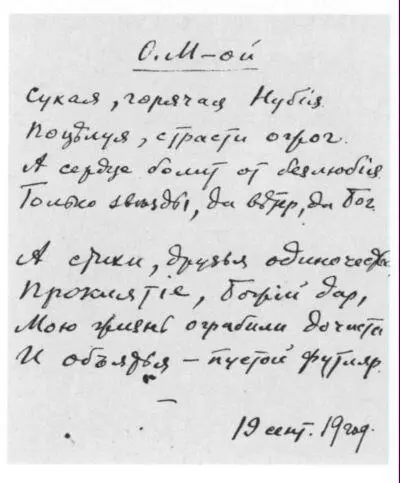 О. М–ой
Сухая, горячая Нубія
Поцѣлуя, страсти ожог.
А сердце болит от безлюбія
Только звѣзды, да вѣтер, да Бог.
А стихи, друзья одиночества,
Проклятіе, Божій дар,
Мою жизнь ограбили дочиста
И объятья – пустой футляр.
19 сент. 19 год.